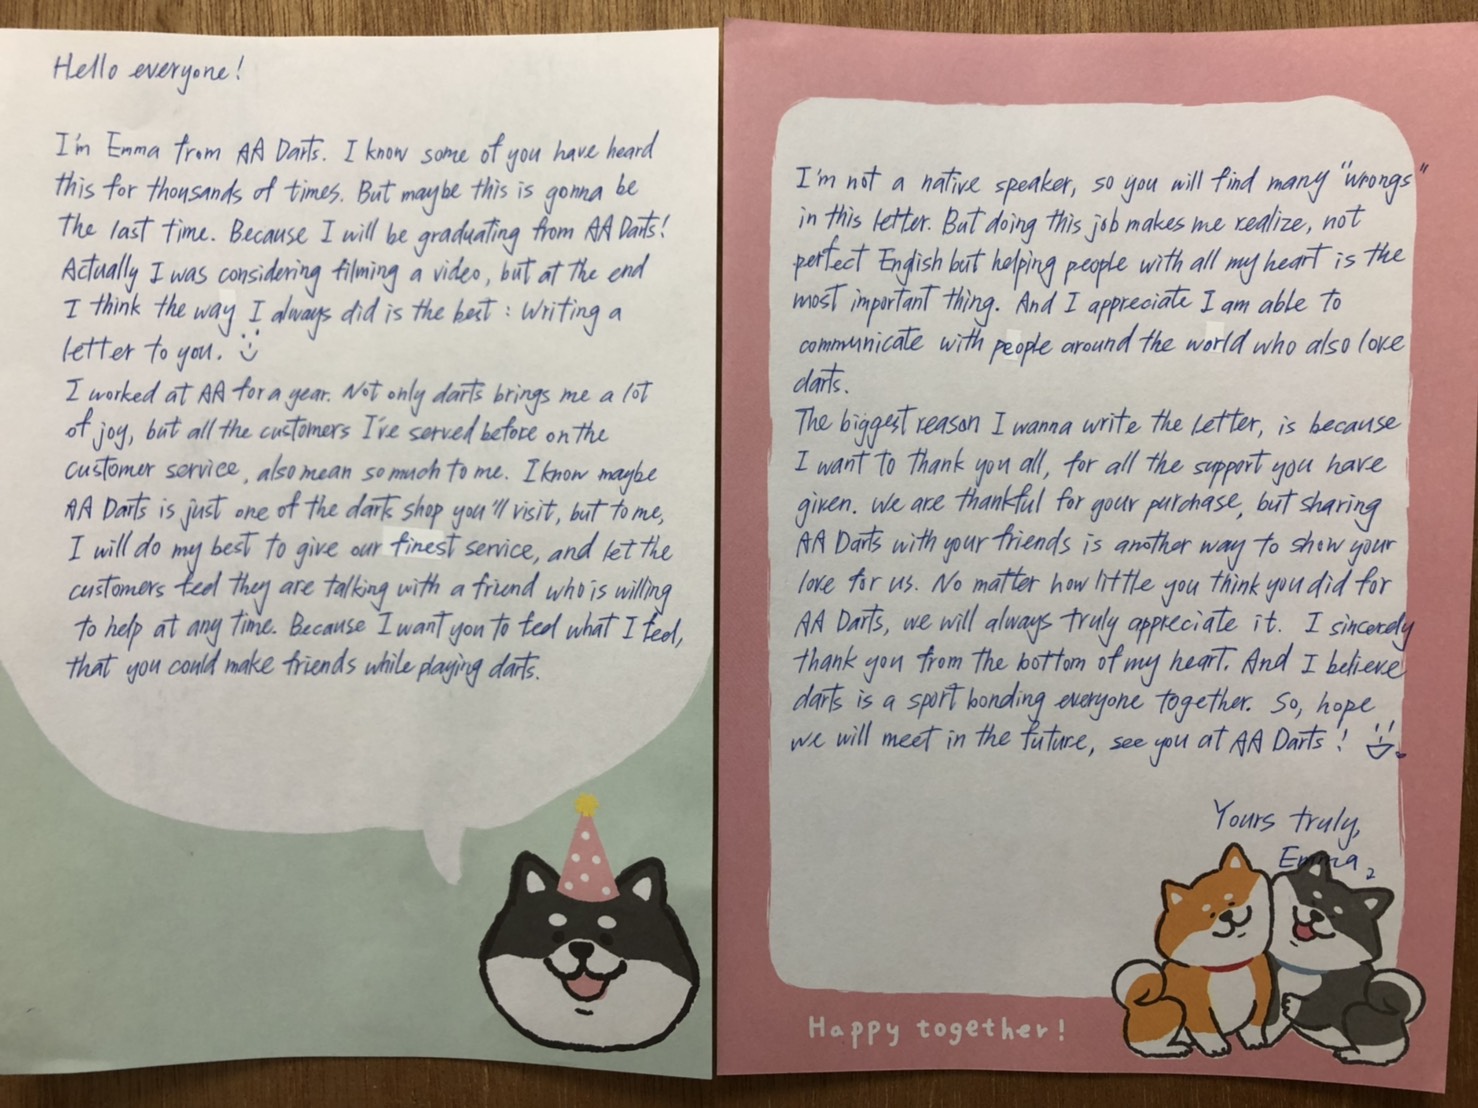 Hello everyone!
I'm Emma from AA Darts. I know some of you have heard
this for thousands of times. But maybe this is gonna be
the last time. Because I will be graduating from AA Darts!
Actually I was considering filming a video, but at the end
I think the way I always did is the best : Writing a
letter to you.
I worked at AA for a year. Not only darts brings me a lot
of joy, but all the customers I've served before on the
customer service, also mean so much to me. I know maybe
AA Darts is just one of the dart shop you'll visit, but to me,
I will do my best to give our finest service, and let the
customers feel they are talking with a friend who is willing
to help at any time. Because I want you to feel what I feel,
that you could make friends while playing darts.
I'm not a native speaker, so you will find many "wrongs"
in this letter. But doing this job makes me realize, not
perfect Engish but helping people with all my heart is the
most important thing. And I appreciate I am able to
communicate with people around the world who also love
darts.
The biggest reason I wanna write the letter, is because
I want to thank you all, for all the support you have
given. We are thankful for your purchase, but sharing
AA Darts with your friends is another way to show your
love for us. No matter how little you think you did for
AA Darts, we will always truly appreciate it. I sincerely
thank you from the bottom of my heart. And I believe
darts is a sport bonding everyone together. So, hope
we will meet in the future, see you at AA Darts!
Yours truly,
Emma
Happy together!